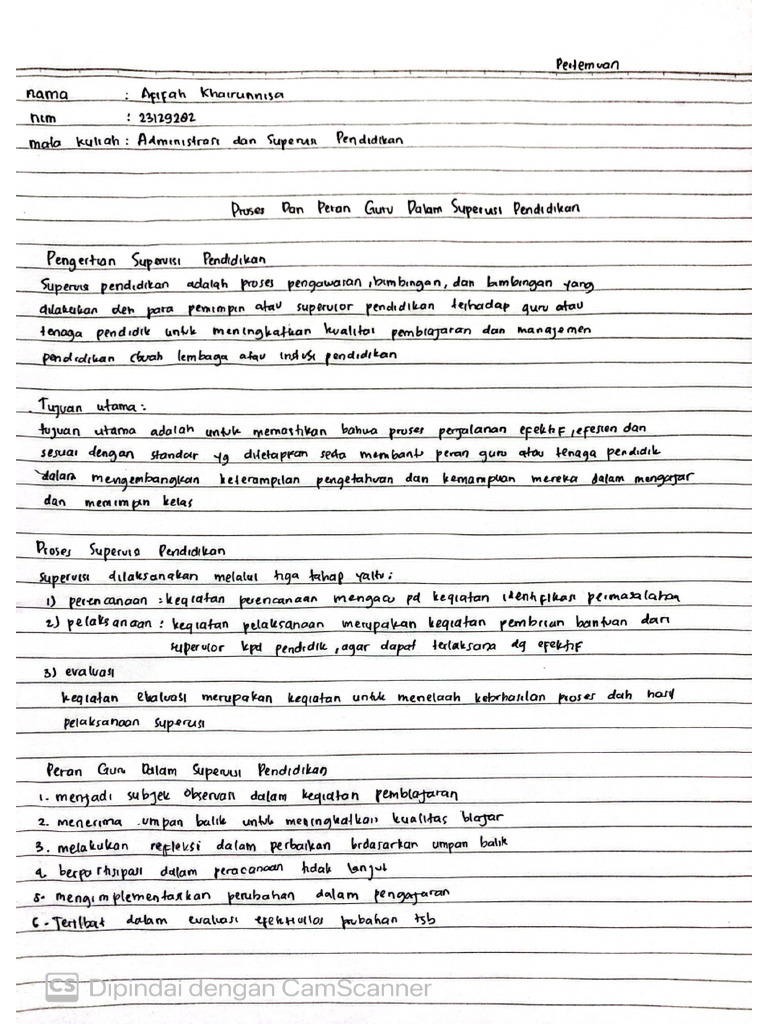 Pertemuan
nama : Afifah Khairunnisa
nim : 23129202
mata kuliah : Administrasi dan Supervisi Pendidikan
Proses Dan Peran Guru Dalam Supervisi Pendidikan
Pengertian Supervisi Pendidikan
Supervisi pendidikan adalah proses pengawasan, bimbingan, dan bimbingan yang
dilakukan oleh para pemimpin atau supervisor pendidikan terhadap guru atau
tenaga pendidik untuk meningkatkan kualitas pemblajaran dan manajemen
pendidikan lembaga atau pendidikan
Tujuan utama :
tujuan utama adalah untuk memastikan bahwa proses perjalanan efektif, efesien dan
sesuai dengan standar yg ditetapkan serta membant peran guru atau tenaga pendidik
dalam mengembangkan keterampilan pengetahuan dan kemampuan mereka dalam mengajar
dan memimpin kelas
Proses Supervisi Pendidikan
Supervisi dilaksanakan melalui tiga tahap yaitu :
1) perencanaan : kegiatan perencanaan mengacu pd kegiatan identifikasi permasalahan
2) pelaksanaan : kegiatan pelaksanaan merupakan kegiatan pembrian bantuan dari
supervisor kpd pendidik, agar dapat terlaksana dg efektif
3) evaluasi
kegiatan evaluasi merupakan kegiatan untuk menelaah keberhasilan proses dah hasil
pelaksanaan supervisi
Peran Guru Dalam Supervisi Pendidikan
1. menjadi subjek observasi dalam kegiatan pemblajaran
2. menerima umpan balik untuk meningkatkan kualitas blajar
3. melakukan refleksi dalam perbaikan brdasarkan umpan balik
4. berpartisipasi dalam peracanaan tidak lanjut
5. mengimplementasikan perubahan dalam pengajaran
6. Terlibat dalam evaluasi efektivitas prubahan tsb
CS Dipindai dengan CamScanner